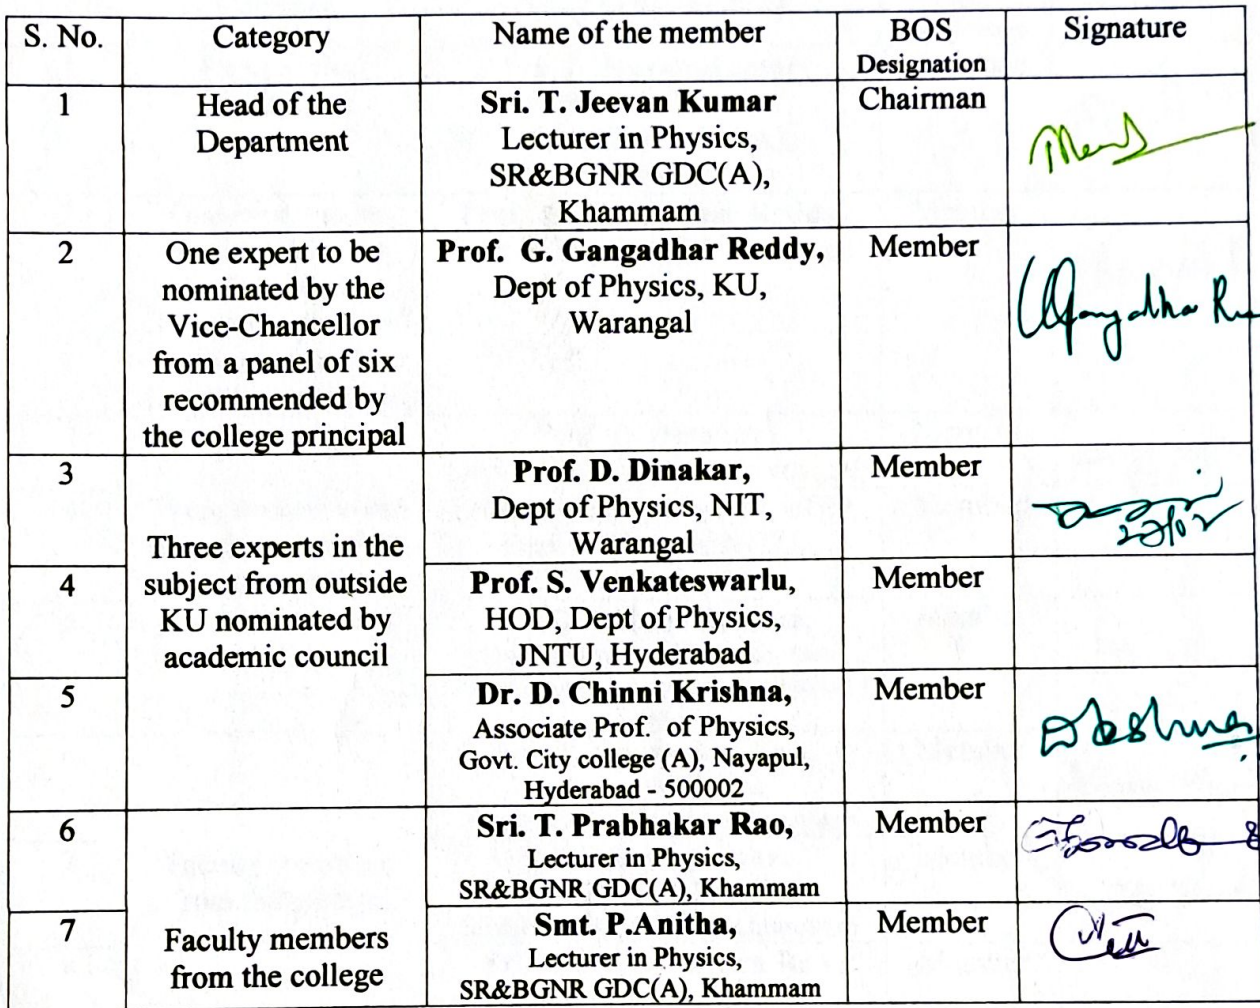 S. No.
Category
Name of the member
BOS
Designation
Signature
1
Head of the
Department
Sri. T. Jeevan Kumar
Lecturer in Physics,
SR&BGNR GDC(A),
Khammam
Chairman
2
One expert to be
nominated by the
Vice-Chancellor
from a panel of six
recommended by
the college principal
Prof. G. Gangadhar Reddy,
Dept of Physics, KU,
Warangal
Member
3
Three experts in the
subject from outside
KU nominated by
academic council
Prof. D. Dinakar,
Dept of Physics, NIT,
Warangal
Member
4
Prof. S. Venkateswarlu,
HOD, Dept of Physics,
JNTU, Hyderabad
Member
5
Dr. D. Chinni Krishna,
Associate Prof. of Physics,
Govt. City college (A), Nayapul,
Hyderabad - 500002
Member
6
Sri. T. Prabhakar Rao,
Lecturer in Physics,
SR&BGNR GDC(A), Khammam
Member
7
Faculty members
from the college
Smt. P.Anitha,
Lecturer in Physics,
SR&BGNR GDC(A), Khammam
Member